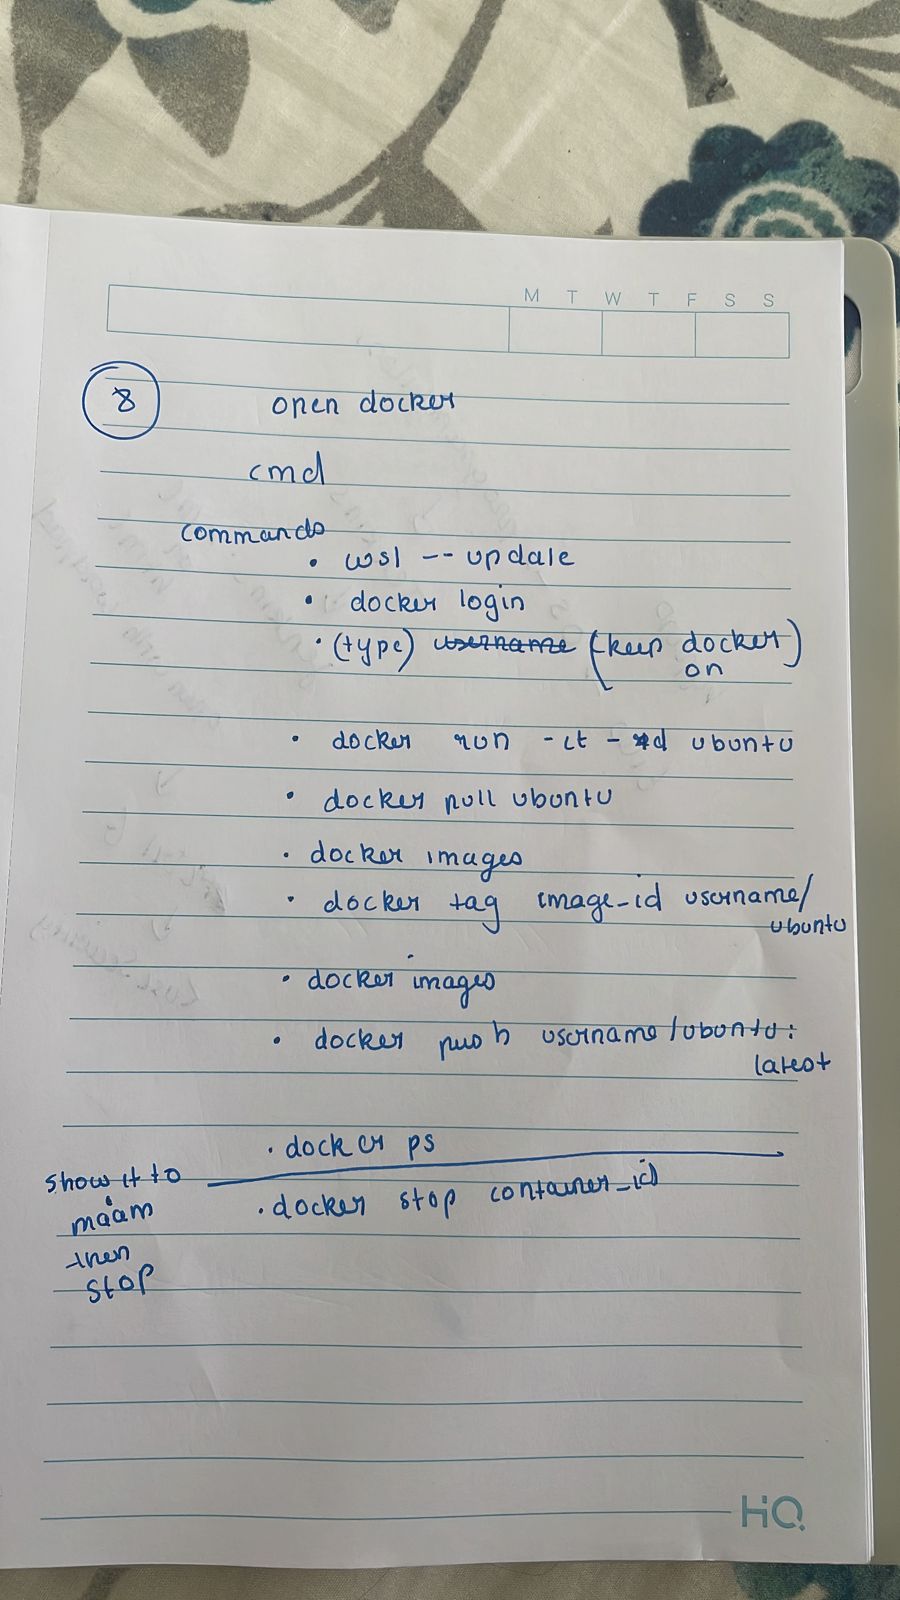 M T W T F S S
8 open docker
cmd
commands
• wsl -- update
• docker login
• (type) username (keep docker)
on
• docker run -it -d ubuntu
• docker pull ubuntu
• docker images
• docker tag image_id username/
ubuntu
• docker images
• docker push username/ubuntu:
latest
• docker ps
show it to
ma'am
then
stop
• docker stop container_id
HQ